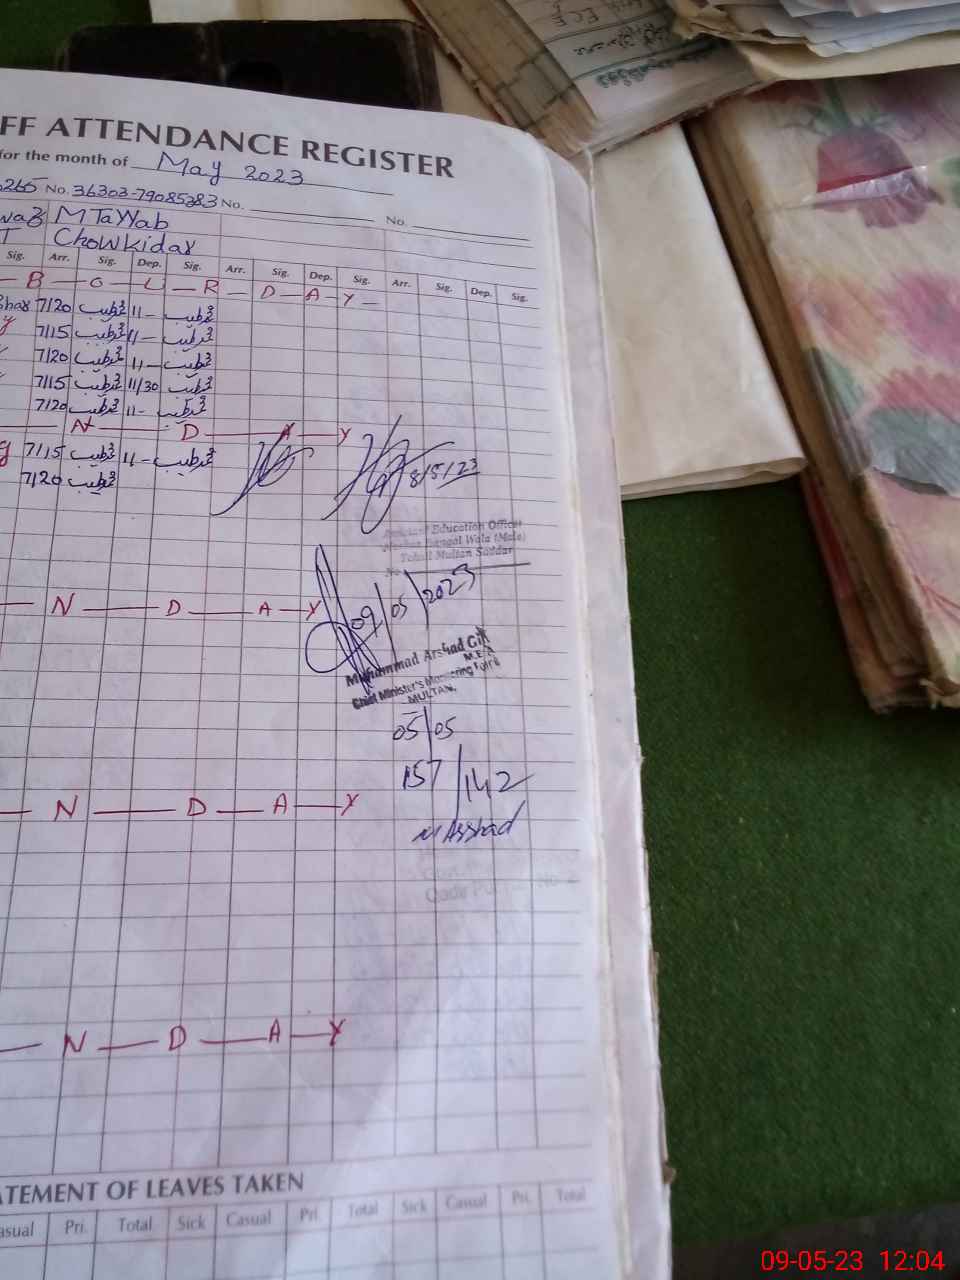 FF ATTENDANCE REGISTER
for the month of May 2023
265 No. 36303-79085383 No. No.
waz M TaYYab
T Chowkidar
Sig. Arr. Sig. Dep. Sig. Arr. Sig. Dep. Sig. Arr. Sig. Dep. Sig.
B O U R D A Y
7/20 محمد طیب 11- محمد طیب
7/15 محمد طیب 11- محمد طیب
7/20 محمد طیب 11- محمد طیب
7/15 محمد طیب 11/30 محمد طیب
7/20 محمد طیب 11- محمد طیب
N D A Y
7/15 محمد طیب 11- محمد طیب
7/20 محمد طیب
8/5/23
Education Officer
Wala (Male)
Tehsil Multan Saddar
09/05/2023
N D A Y
Muhammad Arshad Gill
M.E.A
Chief Minister's Monitoring Force
MULTAN.
05/05
157/142
M Arshad
N D A Y
N D A Y
ATEMENT OF LEAVES TAKEN
asual Pri. Total Sick Casual Pri Total Sick Casual Pri. Total
09-05-23 12:04